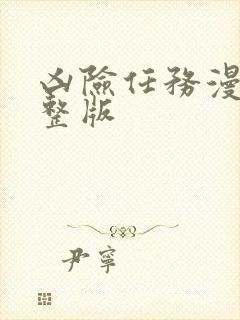 凶險任務漫
整版
尹寧